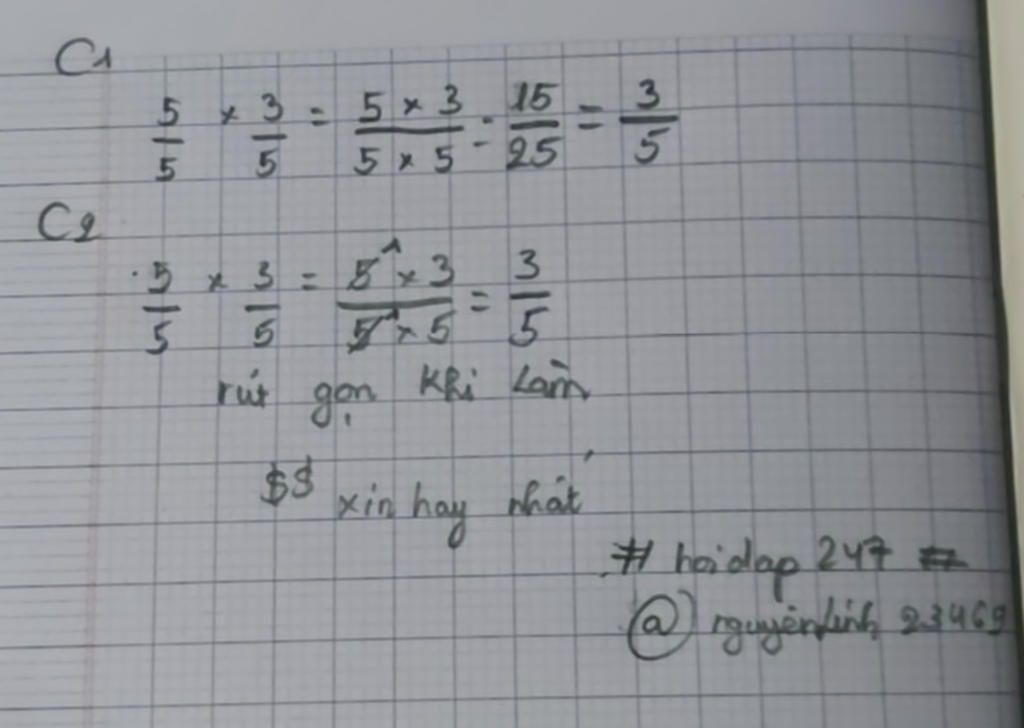 C1
5/5 × 3/5 = 5 × 3 / 5 × 5 = 15/25 = 3/5
C2
5/5 × 3/5 = 5¹ × 3 / 5¹ × 5 = 3/5
rút gọn khi làm
$$ xin hay nhất
# hoidap 247 #
@ nguyenlinh 23469